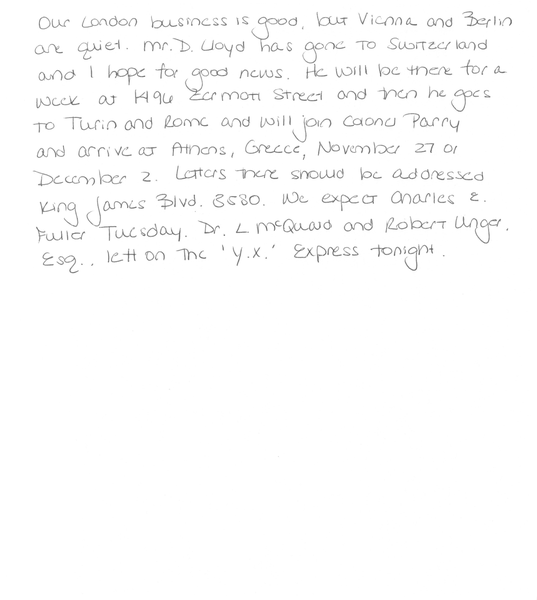 Our London business is good, but Vienna and Berlin
are quiet. Mr. D. Lloyd has gone to Switzerland
and I hope for good news. He will be there for a
week at 1496 Zermott Street and then he goes
to Turin and Rome and will join Colonel Parry
and arrive at Athens, Greece, November 27 or
December 2. Letters there should be addressed
King James Blvd. 3580. We expect Charles E.
Fuller Tuesday. Dr. L McQuaid and Robert Unger,
Esq.. left on the 'Y.X.' Express tonight.